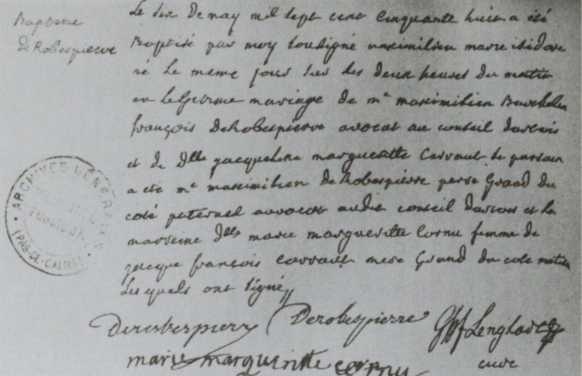 Baptesme
de Robespierre
Le six de may mil sept cent cinquante huit a été
Baptisé par moy soussigné maximilien marie isidore
né Le meme jour sur les deux heures du matin
en Legitime mariage de mᵉ maximilien Barthelem
françois deRobespierre avocat au conseil dartois
et de Dlle jacqueline margueritte Carraut. Le parrain
a été mᵉ maximilien deRobespierre pere Grand du
coté paternel avocat audit conseil dartois et la
marreine Dlle marie margueritte Cornu femme de
jacque françois Carraut mere Grand du coté
Lesquels ont signé
ARCHIVES GENERALES
(PAS-DE-CALAIS)
Derobespierre Derobespierre Lenglart
marie margueritte cornu curé